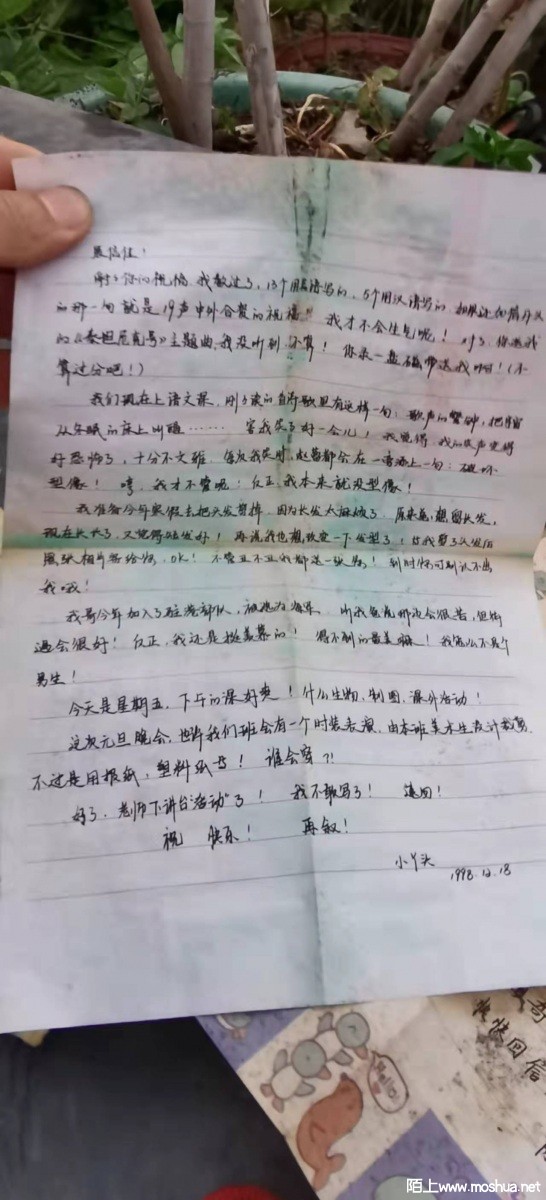 谢了你的祝福,我数过了,13个用英语写的,5个用汉语写的,如果还加前
的那一句就是19声中外合资的祝福!! 我才不会生气呢! 对了,你
的《泰坦尼克号》主题曲,我没听到,不算! 你录一盘磁带送我啊!(不
算过分吧!)
我们现在上语文课,刚刚读的 里有这样一句:歌声的警钟,把
从冬眠的床上叫醒…… 害我笑了好一会儿! 我觉得,我的笑声变得
好恐怖了,十分不文雅,每次我笑时, 都会在一旁添上一句:破坏
型像! 哼,我才不管呢!反正,我本来就没型像!
我准备今年寒假去把头发剪掉,因为长发太麻烦了,原来 ,想留长发,
现在长长了,又觉得短发好!再说我也想改变一下发型了!
照张相片寄给你,OK! 不管丑不丑我都送一张你!到时你可别认不出
我哦!
我哥今年加入了驻港部队,被选为海军,听我爸说那边会很苦,但待
遇会很好! 反正,我还是挺羡慕的! 得不到的最美嘛!我怎么不是个
男生!
今天是星期五,下午的课好爽!什么生物,制图,课外活动!
这次元旦晚会,也许我们班会有一个时装表演,由本班美术生设计裁剪,
不过是用报纸,塑料纸 ! 谁会穿?!
好了,老师下讲台“活动”了! 我不敢写了! 速回!
祝 快乐! 再叙!
小丫头 1998.12.18
回信
Hello!
陌上www.moshua.net